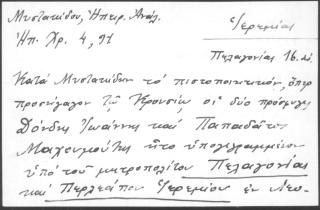 Μυστακίδου, Ἠπειρ. Ἀνάλ.
Ἠπ. Χρ. 4, 91
Ἱερεμίας
Πελαγονίας 16. αἰ.
Κατὰ Μυστακίδην τὸ πιστοποιητικόν, ὅπερ
προσήγαγον τῷ Κρουσίῳ, οἱ δύο πρόσφυγες
Δόνδης Ἰωάννης καὶ Παπαδᾶτος
ἦτο ὑπογεγραμμένον
ὑπὸ τοῦ μητροπολίτου Πελαγονίας
καὶ Περλεάπου Ἱερεμίου ἐν